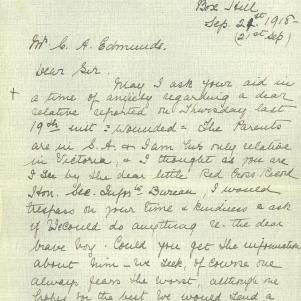 Box Hill
Sep. 21st 1918-
(21st Sep)
Mr C. A. Edmunds.
Dear Sir.
May I ask your aid in
a time of anxiety regarding a dear
relative reported on Thursday last
19th inst = Wounded = The Parents
are in S.A. & I am his only relative
in Victoria, & I thought as you are
I see by the dear little Red Cross Record
Hon. Sec. Infor. Bureau, I would
trespass on your time & kindness & ask
if could do anything re the dear
brave boy. Could you get the information
about him - we seek, of course one
always fears the worst, although we
hope for the best we would send a